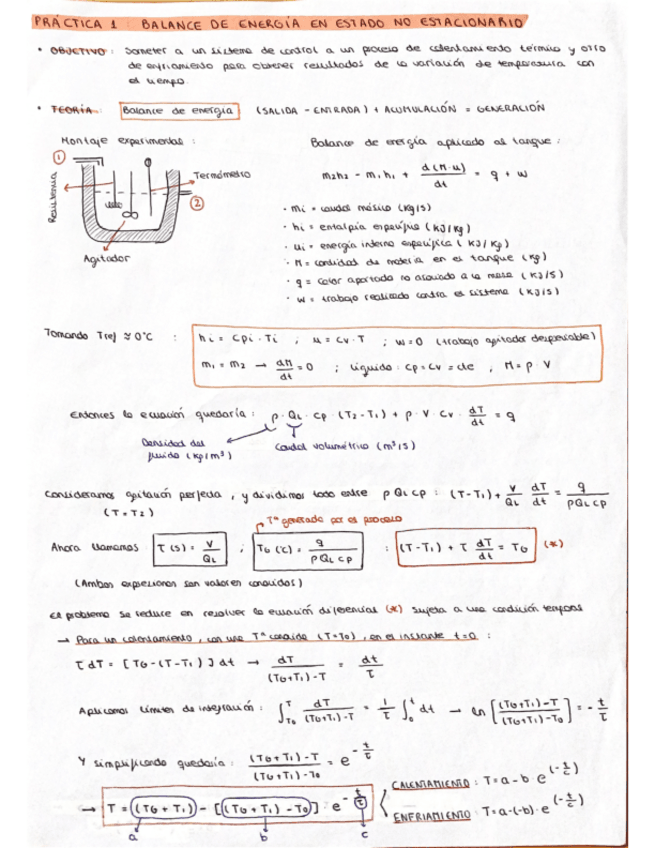 PRÁCTICA 1 : BALANCE DE ENERGÍA EN ESTADO NO ESTACIONARIO
• OBJETIVO : Someter a un sistema de control a un proceso de calentamiento térmico y otro
de enfriamiento para obtener resultados de la variación de temperatura con
el tiempo.
• TEORÍA : Balance de energía (SALIDA - ENTRADA) + ACUMULACIÓN = GENERACIÓN
Montaje experimental :
Balance de energía aplicado al tanque :
1
Resistencia
Termómetro
2
Agitador
m₂h₂ - m₁h₁ + d(M·u)/dt = q + w
· mi = caudal másico (kg/s)
· hi = entalpía específica (KJ/kg)
· ui = energía interna específica (KJ/kg)
· M = cantidad de materia en el tanque (kg)
· q = calor aportado no asociado a la masa (KJ/s)
· w = trabajo realizado contra el sistema (KJ/s)
Tomando Tref ≈ 0°C :
hi = cpi · Ti ; u = cv · T ; w=0 (trabajo agitador despreciable)
m₁ = m₂ → dM/dt = 0 ; líquido : cp = cv = cte , M = ρ · V
Entonces la ecuación quedaría : ρ · QL · cp · (T₂-T₁) + ρ · V · cv · dT/dt = q
Densidad del
fluido (kg/m³)
Caudal volumétrico (m³/s)
Consideramos agitación perfecta , y dividimos todo entre ρ QL cp : (T-T₁) + V/QL dT/dt = q/ρQLcp
(T=T₂)
Tª generada por el proceso
Ahora llamamos : τ(s) = V/QL ; TG (C) = q/ρQLcp : (T-T₁) + τ dT/dt = TG (*)
(Ambas expresiones son valores conocidos)
El problema se reduce en resolver la ecuación diferencial (*) sujeta a una condición temporal
→ Para un calentamiento , con una Tª conocida (T=T₀) , en el instante t=0 :
τ dT = [TG-(T-T₁)] dt → dT/(TG+T₁)-T = dt/τ
Aplicamos límites de integración : ∫T₀ᵀ dT/(TG+T₁)-T = 1/τ ∫₀ᵗ dt → ln [(TG+T₁)-T/(TG+T₁)-T₀] = - t/τ
Y simplificando quedaría : (TG+T₁)-T/(TG+T₁)-T₀ = e^-t/τ
→ T = (TG+T₁) - [(TG+T₁)-T₀] · e^-t/τ
CALENTAMIENTO : T=a-b·e^(-t/c)
ENFRIAMIENTO : T=a-(-b)·e^(-t/c)
a b c